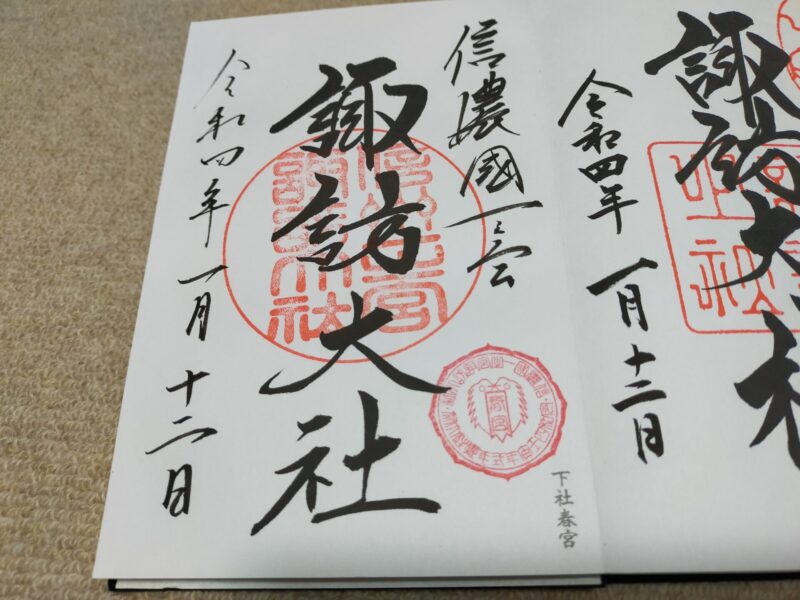 令和四年 一月十二日
諏訪大社
令和四年 一月十二日
諏訪大社
信濃國一之宮
下社春宮